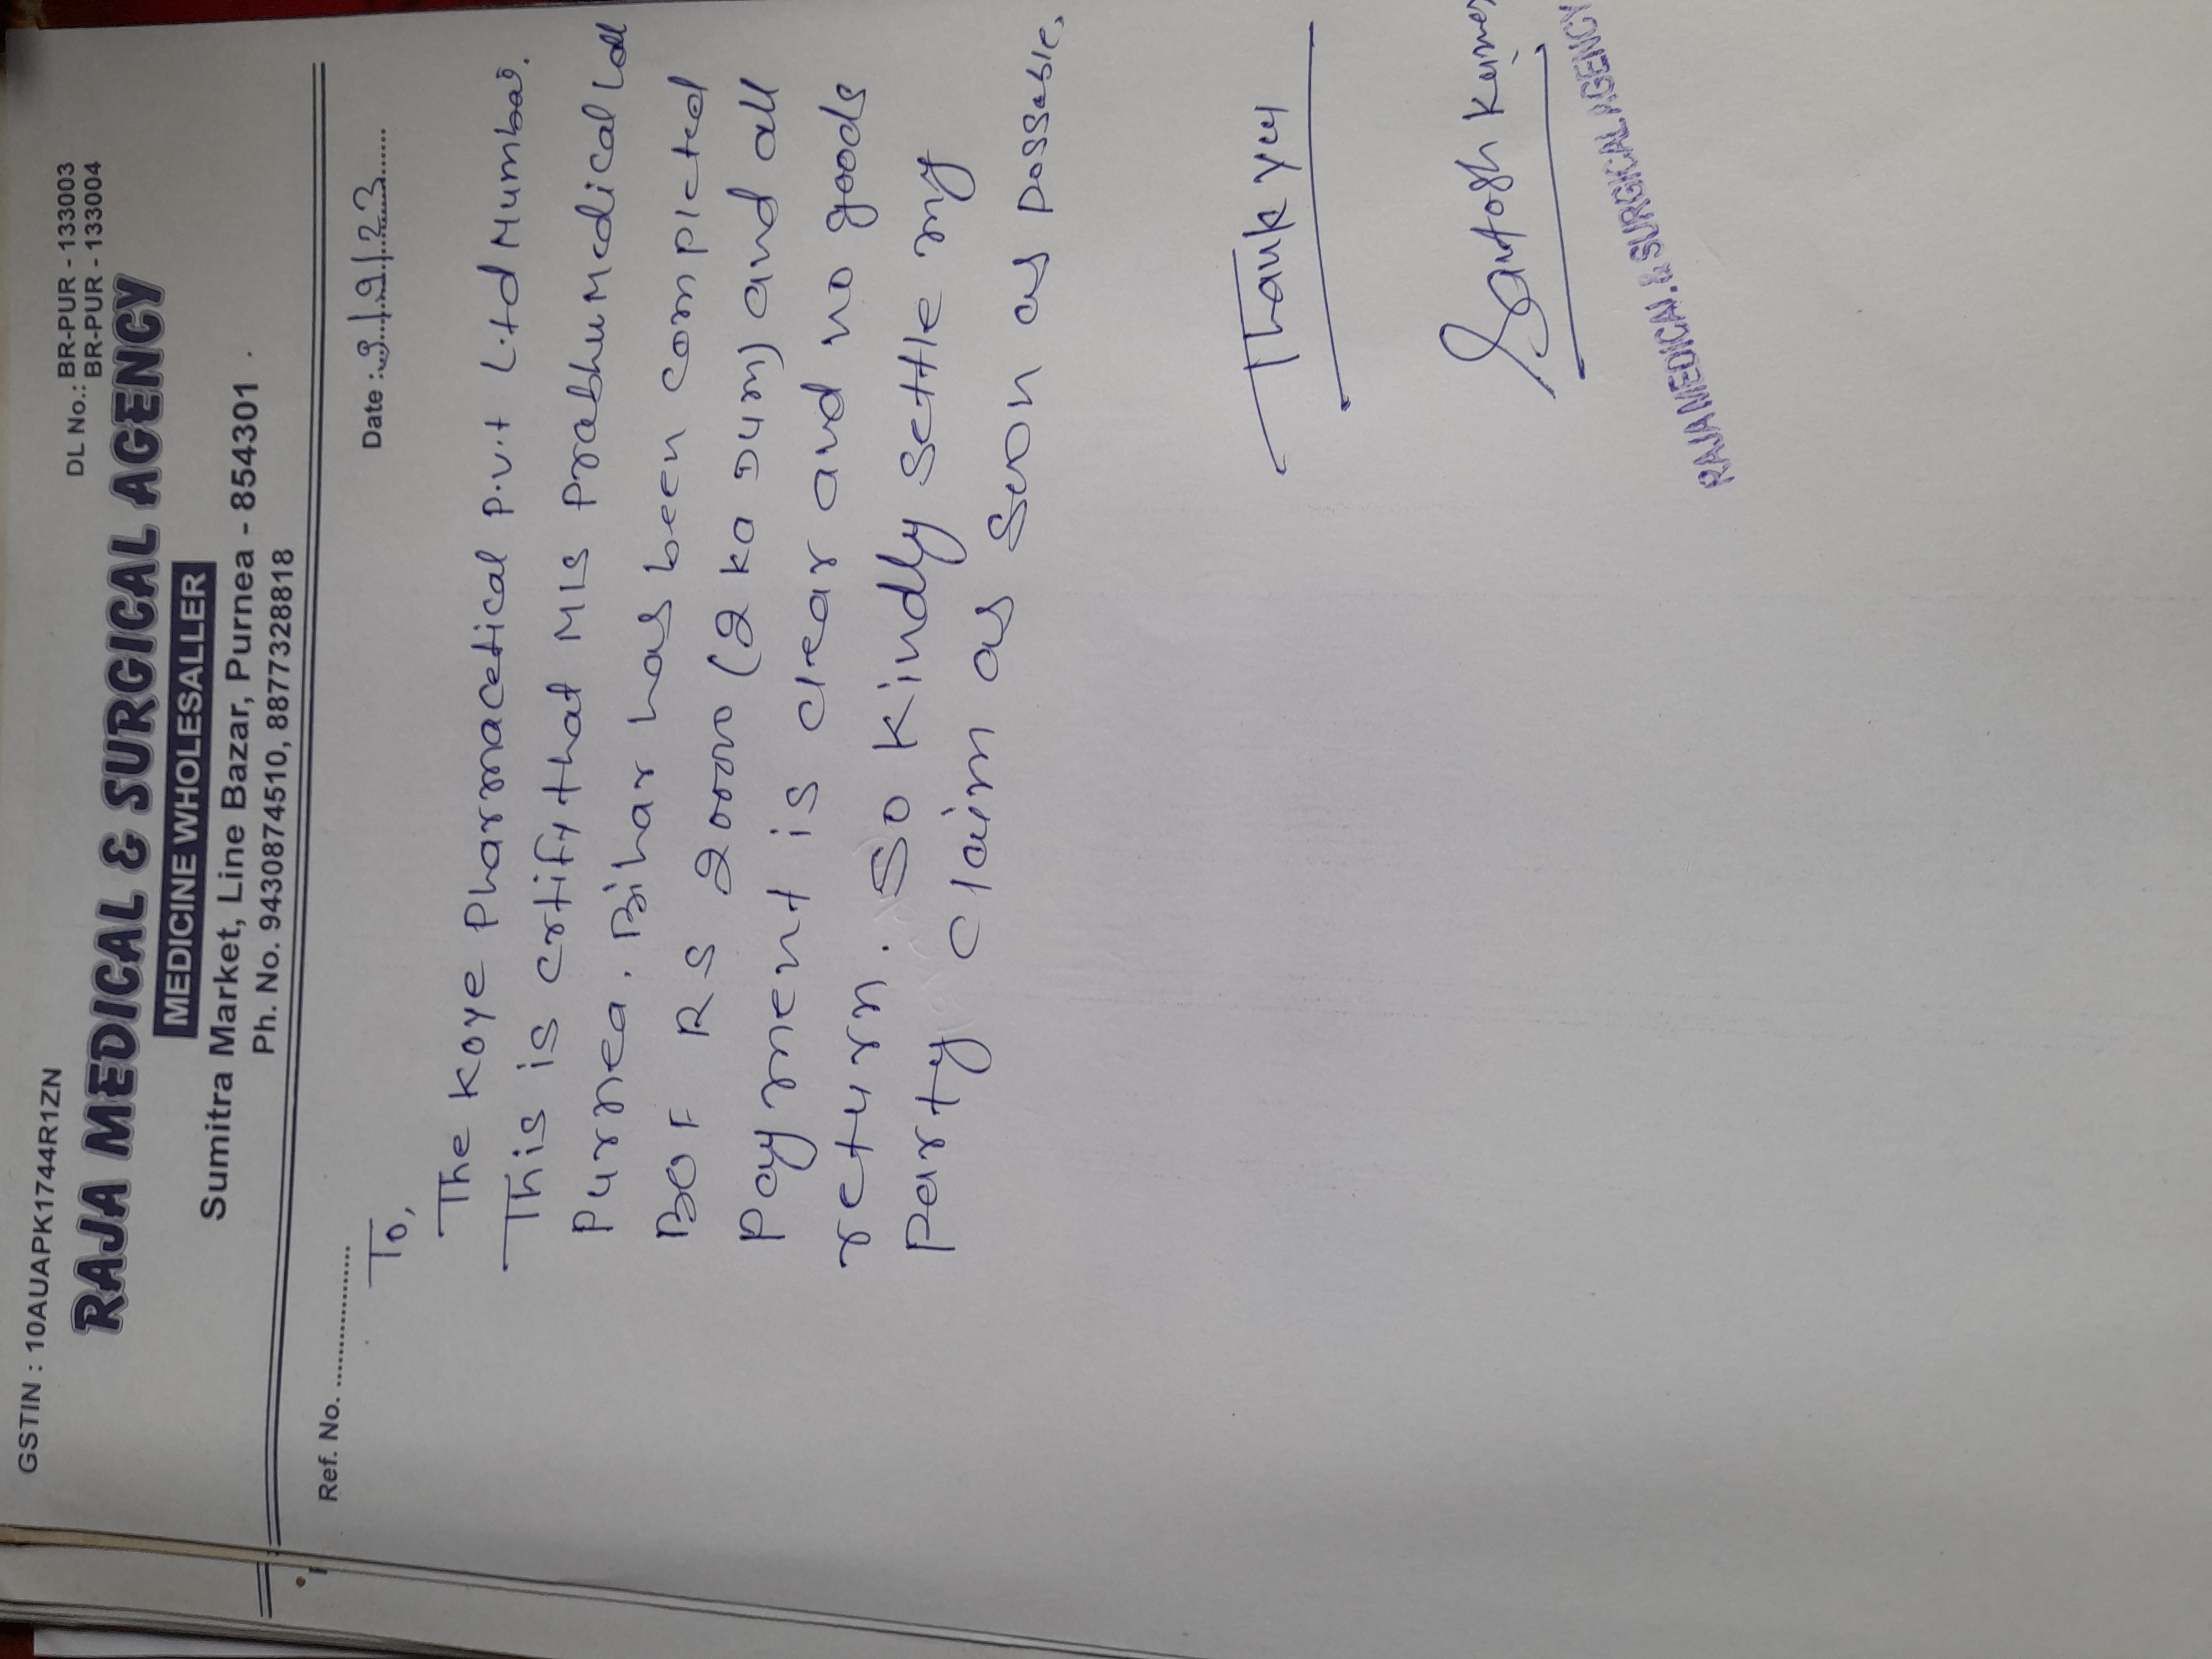 GSTIN : 10AUAPK1744R1ZN
DL No.: BR-PUR - 133003
BR-PUR - 133004
RAJA MEDICAL & SURGICAL AGENCY
MEDICINE WHOLESALLER
Sumitra Market, Line Bazar, Purnea - 854301
Ph. No. 9430874510, 8877328818
Ref. No. ....................
Date : 9/9/23
To,
The Koye Pharmacetical P.vt Ltd Mumbai.
This is crtify that M/s Prabhu Medical
Purnea. Bihar has been completed
RS 20000 (2 ka Dum) and all
Payment is clear and no goods
return. So Kindly settle my
Party claim as soon as possable.
Thank you
Santosh Kumar
RAJA MEDICAL & SURGICAL AGENCY